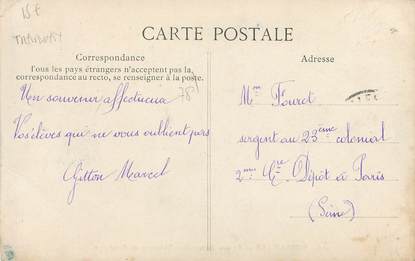 15€
CARTE POSTALE
Correspondance
Tous les pays étrangers n'acceptent pas la
correspondance au recto, se renseigner à la poste.
Un souvenir affectueux
Vos élèves qui ne vous oublient pas
Gitton Marcel
Adresse
Mr Fouret
sergent au 23ème colonial
2me Cie Dépôt à Paris
(Seine)